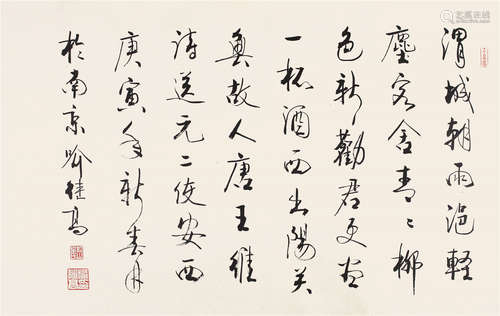 渭城朝雨浥軽
塵客舎青〻柳
色新〻勸君更盡
一杯酒西出陽关
無故人唐王維
詩送元二使安西
庚寅年新春月
於南京